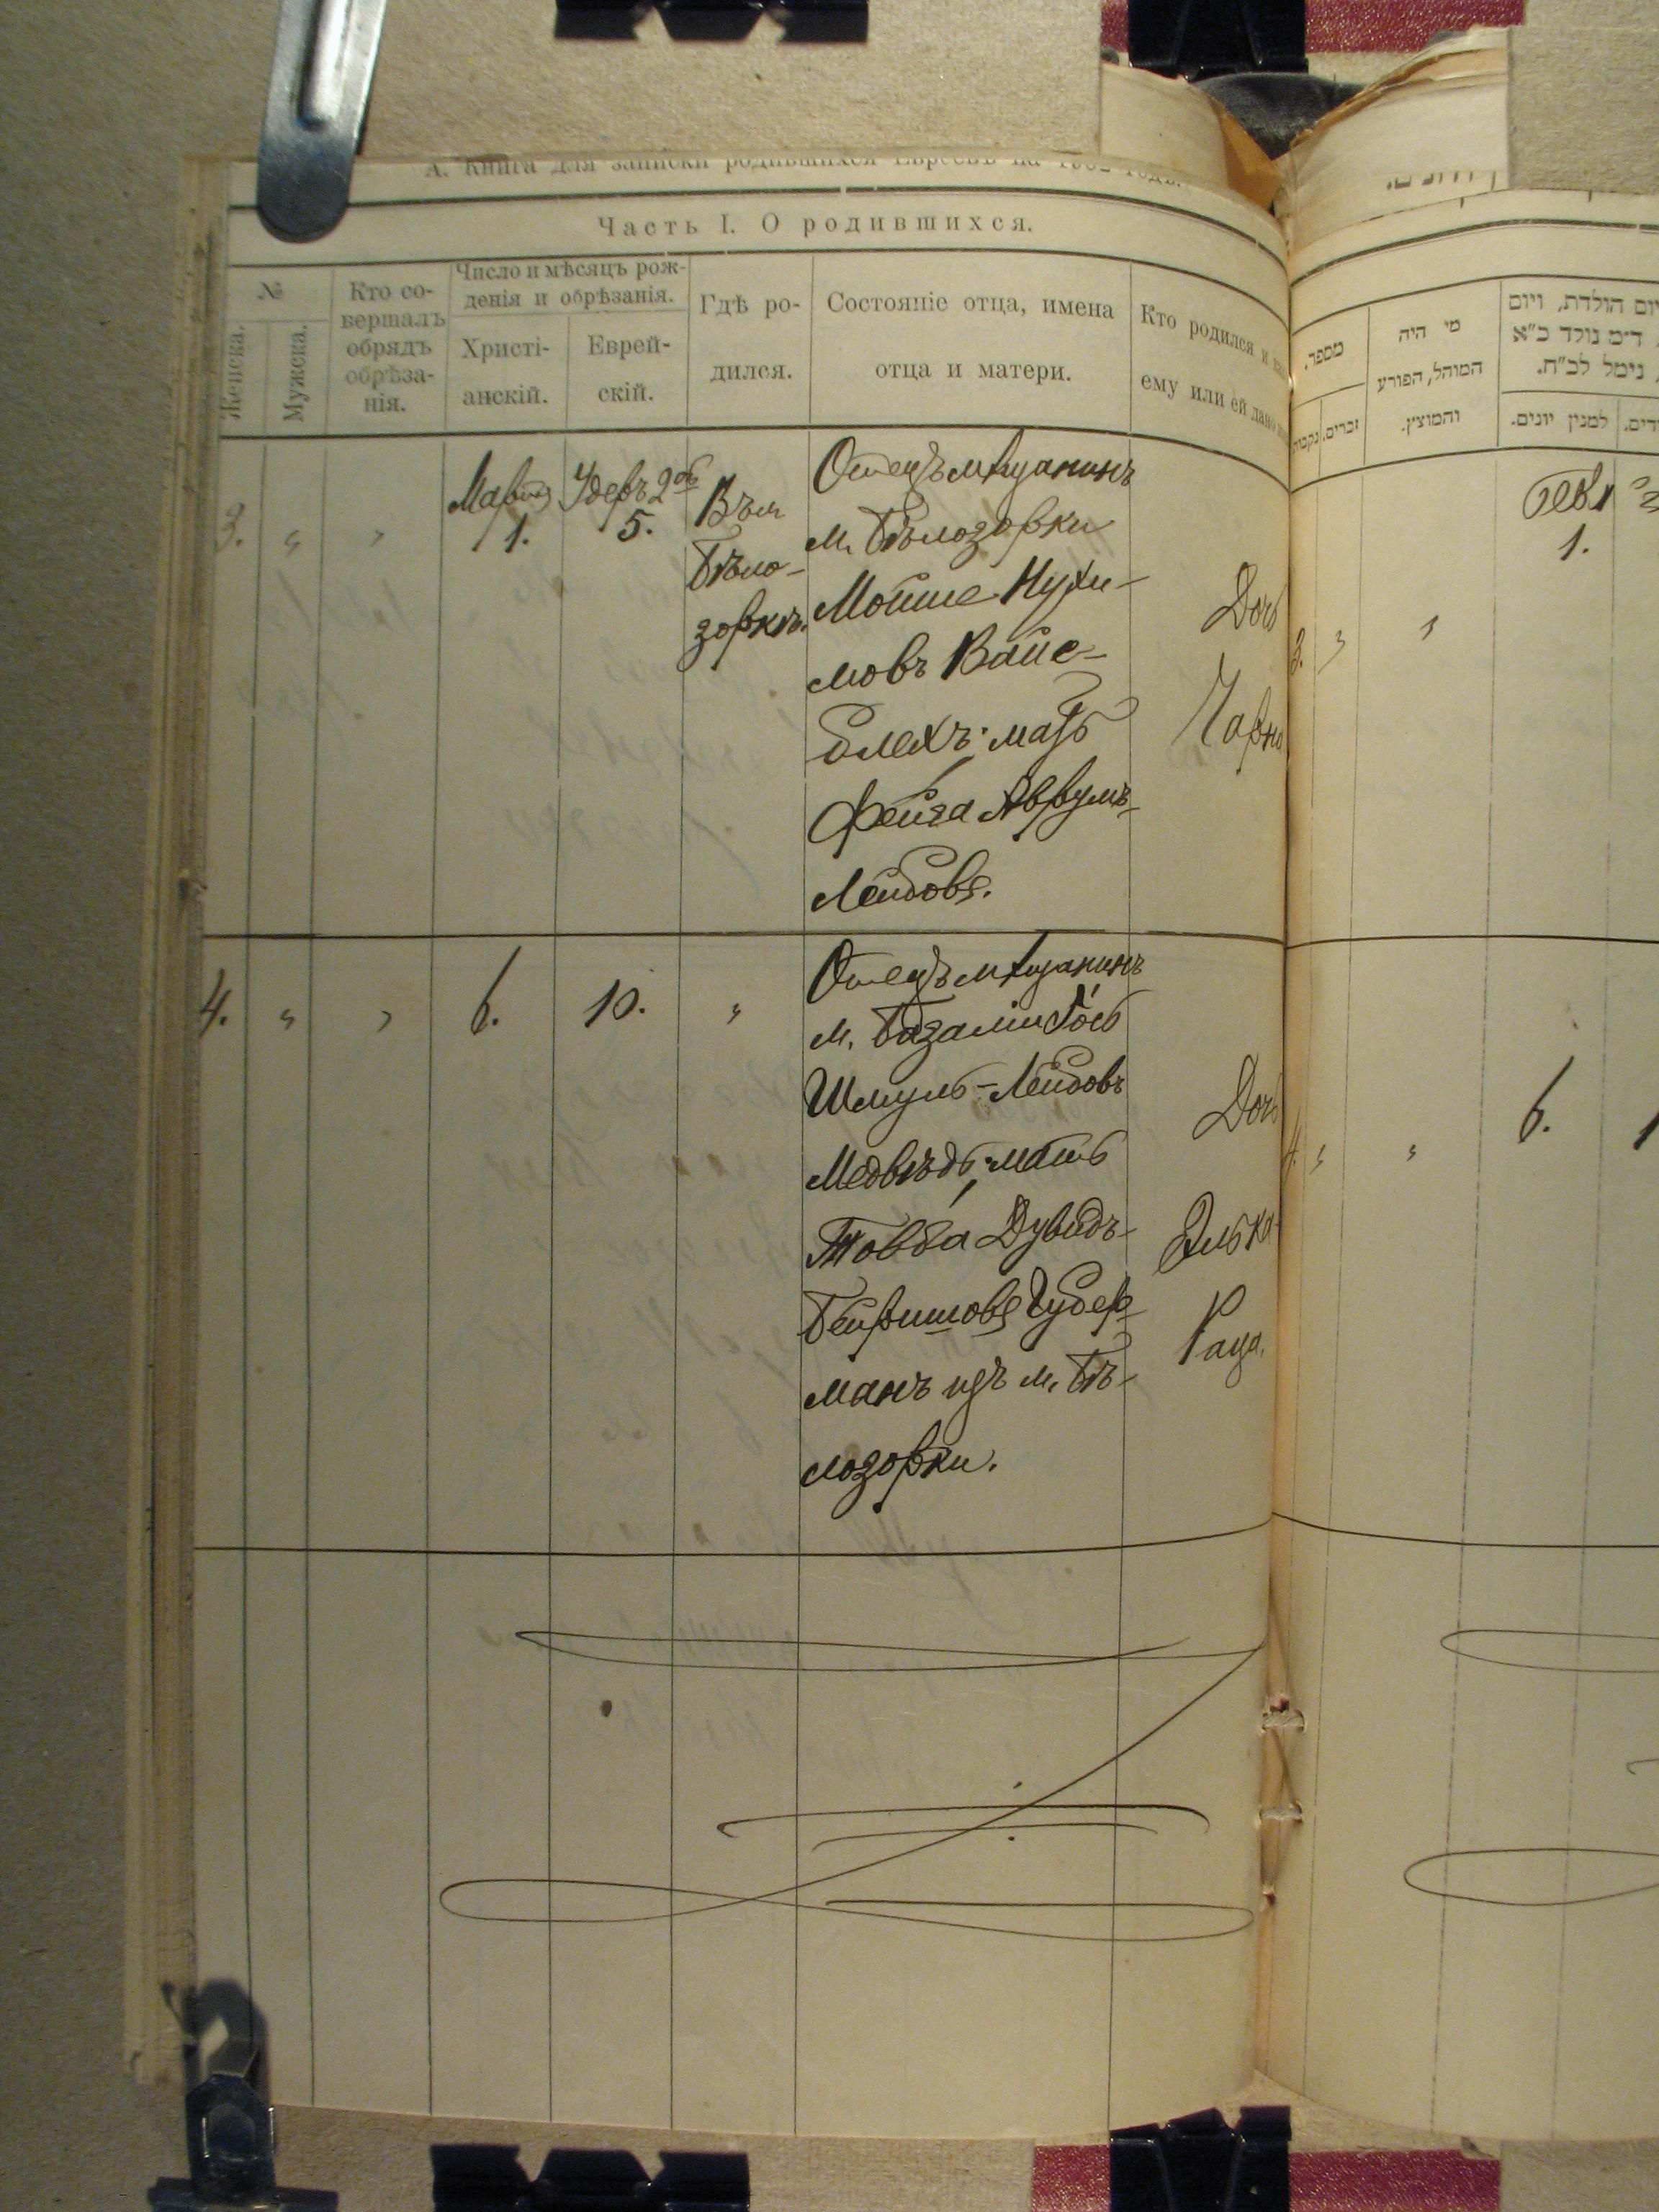 А. Книга для записки родившихся Евреевъ на
Часть I. О родившихся.
№
Женска.
Мужска.
Кто со-
вершалъ
обрядъ
обрѣза-
нія.
Число и мѣсяцъ рож-
денія и обрѣзанія.
Христі-
анскій.
Еврей-
скій.
Гдѣ ро-
дился.
Состояніе отца, имена
отца и матери.
Кто родился и
ему или ей дано
3.
"
"
Марта
1.
Удеръ 2об
5.
Въ м
Бѣло-
зоркѣ.
Отецъ мѣщанинъ
м. Бѣлозорки
Мойше Нухи-
мовъ Вайс-
блехъ; мать
Фейга Аврумъ-
Лейбова.
Дочь
Чарна
4.
"
"
6.
10.
"
Отецъ мѣщанинъ
м. Базаліи Гось
Шмуль-Лейбовъ
Медвѣдь; мать
Товба Дувидъ-
Беришова Губер-
манъ изъ м. Бѣ-
лозорки.
Дочь
Элька
Раца.
מספר.
נקבות
זכרים.
מי היה
המוהל, הפורע
והמוצץ.
יום הולדת, ויום
ד״מ נולד כ״א
נימל לכ״ח.
למנין יונים.
1.
3.
"
"
4.
"
"
6.